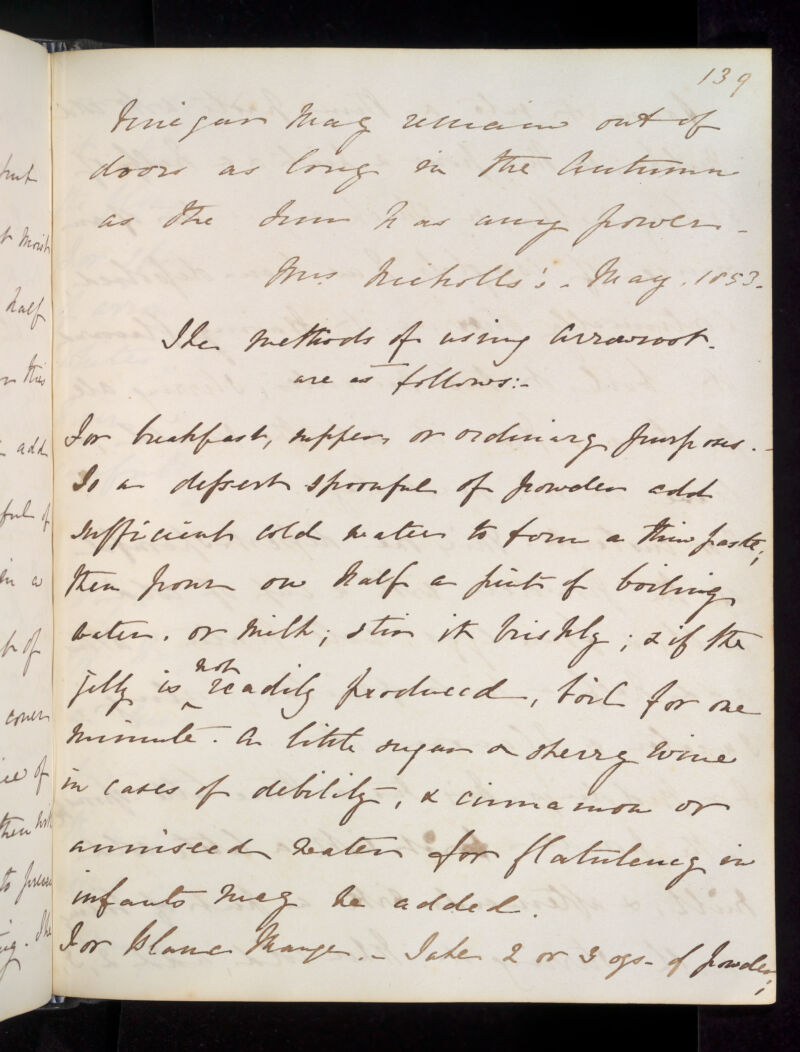 139
Vinegar May remain out of
doors as long in the Autumn
as the Sun has any power -
Mrs. Nicholls's - May. 1853 -
The methods of using Arrowroot -
are as follows:-
For breakfast, supper, or ordinary purposes. -
To a dessert spoonful of powder add
sufficient cold water to form a thin paste;
then pour on half a pint of boiling
water, or milk; stir it briskly; & if the
jelly is not readily produced, boil for one
minute. A little sugar or sherry wine
in cases of debility, & cinnamon or
anniseed water for flatulency in
infants may be added.
For Blanc Mange. - Take 2 or 3 ozs - of powder;
but
t moist
half
n this
add
ful of
in a
t of
cover
ice of
then
to
ing. The